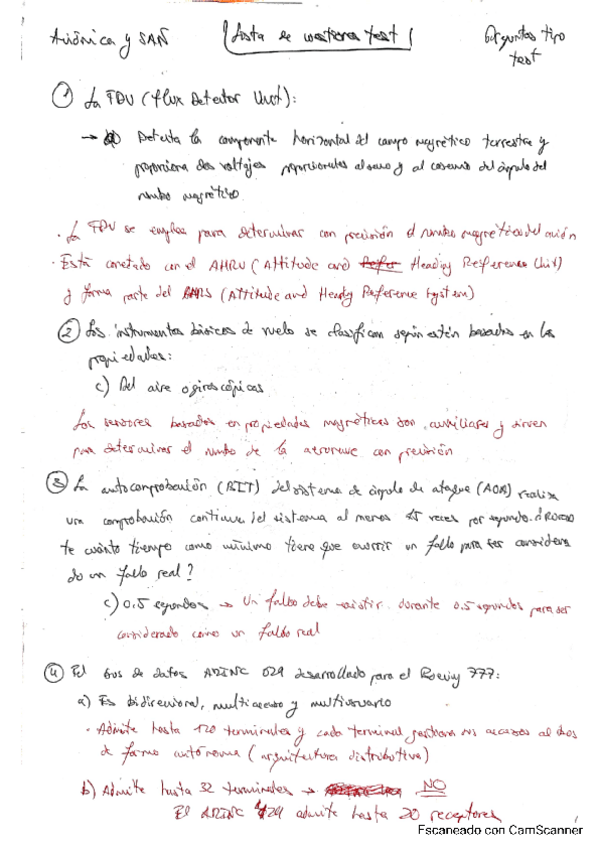 Aviónica y SAÑ
Lista de cuestiones test
Preguntas tipo
test
① La FDU (Flux Detector Unit):
→ a) Detecta la componente horizontal del campo magnético terrestre y
proporciona dos voltajes proporcionales al seno y al coseno del ángulo del
rumbo magnético
· La FDU se emplea para determinar con precisión el rumbo magnético del avión
· Está conectado con el AHRU (Attitude and Heading Reference Unit)
y forma parte del (Attitude and Heading Reference System)
② Los instrumentos básicos de vuelo se clasifican según estén basados en las
propiedades:
c) Del aire o giroscópicas
Los sensores basados en propiedades magnéticas son auxiliares y sirven
para determinar el rumbo de la aeronave con precisión
③ La autocomprobación (BIT) del sistema de ángulo de ataque (AOA) realiza
una comprobación continua del sistema al menos veces por segundo. ¿Duran
te cuánto tiempo como mínimo tiene que ocurrir un fallo para ser considera
do un fallo real?
c) 0.5 segundos → Un fallo debe existir durante 0.5 segundos para ser
considerado como un fallo real
④ El bus de datos ARINC 629 desarrollado para el Boeing 777:
a) Es bidireccional, multiacceso y multiusuario
· Admite hasta 120 terminales y cada terminal gestiona sus accesos al bus
de forma autónoma (arquitectura distributiva)
b) Admite hasta 32 terminales → NO
El ARINC 429 admite hasta 20 receptores
Escaneado con CamScanner